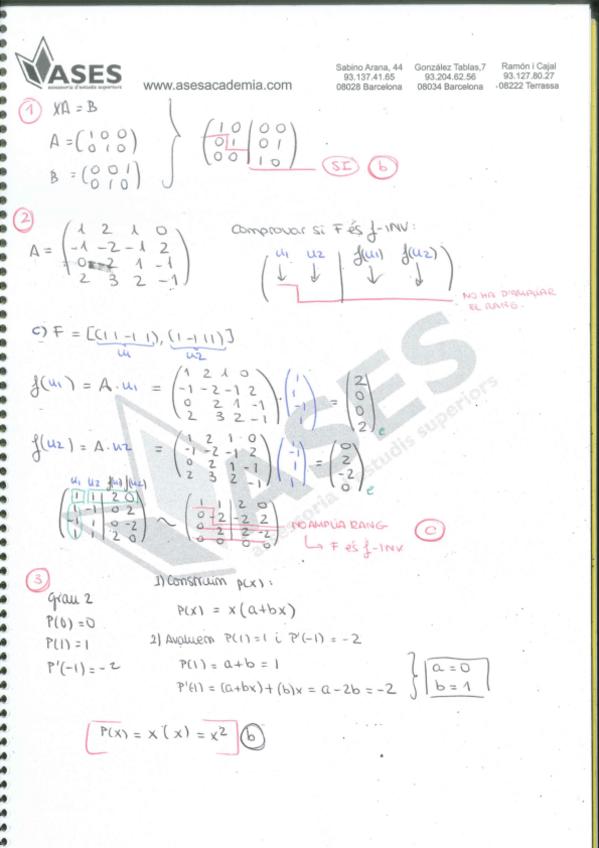 ASES
assessoria d'estudis superiors
www.asesacademia.com
Sabino Arana, 44
93.137.41.65
08028 Barcelona
González Tablas,7
93.204.62.56
08034 Barcelona
Ramón i Cajal
93.127.80.27
08222 Terrassa
① XA = B
A = (1 0 0
0 1 0)
B = (0 0 1
0 1 0)
(1 0 | 0 0
0 1 | 0 1
0 0 | 1 0)
SI b
②
A = (1 2 1 0
-1 -2 -1 2
0 2 1 -1
2 3 2 -1)
Comprovar si F és f-INV:
(u1 u2 | f(u1) f(u2))
NO HA D'AMPLIAR
EL RANG.
c) F = [(1 1 -1 1), (1 -1 1 1)]
u1 u2
f(u1) = A·u1 = (1 2 1 0
-1 -2 -1 2
0 2 1 -1
2 3 2 -1) · (1
1
-1
1) = (2
0
0
2)e
f(u2) = A·u2 = (1 2 1 0
-1 -2 -1 2
0 2 1 -1
2 3 2 -1) (1
-1
1
1) = (0
2
-2
0)e
u1 u2 f(u1) f(u2)
(1 1 | 2 0
1 -1 | 0 2
-1 1 | 0 -2
1 1 | 2 0) ~ (1 1 | 2 0
0 -2 | -2 2
0 2 | 2 -2
0 0 | 0 0)
NO AMPLIA RANG
↳ F és f-INV
c
③
Grau 2
P(0)=0
P(1)=1
P'(-1)=-2
1) Construim p(x):
P(x) = x(a+bx)
2) Avaluem P(1)=1 i P'(-1) = -2
P(1) = a+b = 1
P'(1) = (a+bx)+(b)x = a-2b = -2
a = 0
b = 1
P(x) = x(x) = x² b
ASES
assessoria d'estudis superiors